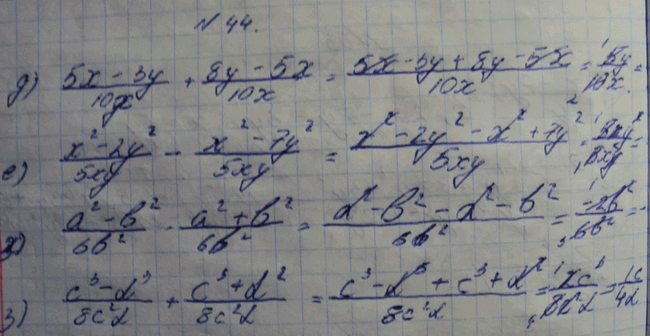 N 44.
д) (5x - 3y)/(10x) + (8y - 5x)/(10x) = (5x - 3y + 8y - 5x)/(10x) = (5y)/(10x) =
е) (x² - 2y²)/(5xy) - (x² - 7y²)/(5xy) = (x² - 2y² - x² + 7y²)/(5xy) =
ж) (a² - b²)/(6b²) - (a² + b²)/(6b²) = (a² - b² - a² - b²)/(6b²) = (-2b²)/(6b²) = -
з) (c³ - d³)/(8c²d) + (c³ + d²)/(8c²d) = (c³ - d³ + c³ + d²)/(8c²d) = (2c³)/(8c²d) = (1c)/(4d)